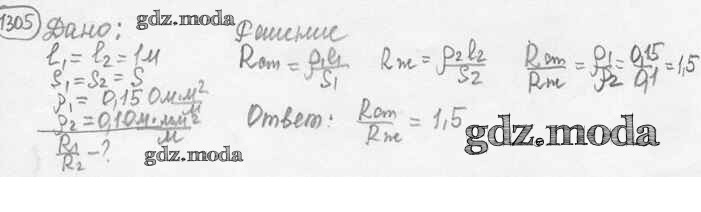 1305 Дано: gdz.moda Решение
l₁ = l₂ = 1м
S₁ = S₂ = S
ρ₁ = 0,15 Ом·мм²/м
ρ₂ = 0,1 Ом·мм²/м
R₁/R₂ - ?
gdz.moda
Rот = ρ₁l₁/S₁ Rж = ρ₂l₂/S₂ Rот/Rж = ρ₁/ρ₂ = 0,15/0,1 = 1,5
Ответ: Rот/Rж = 1,5
gdz.moda